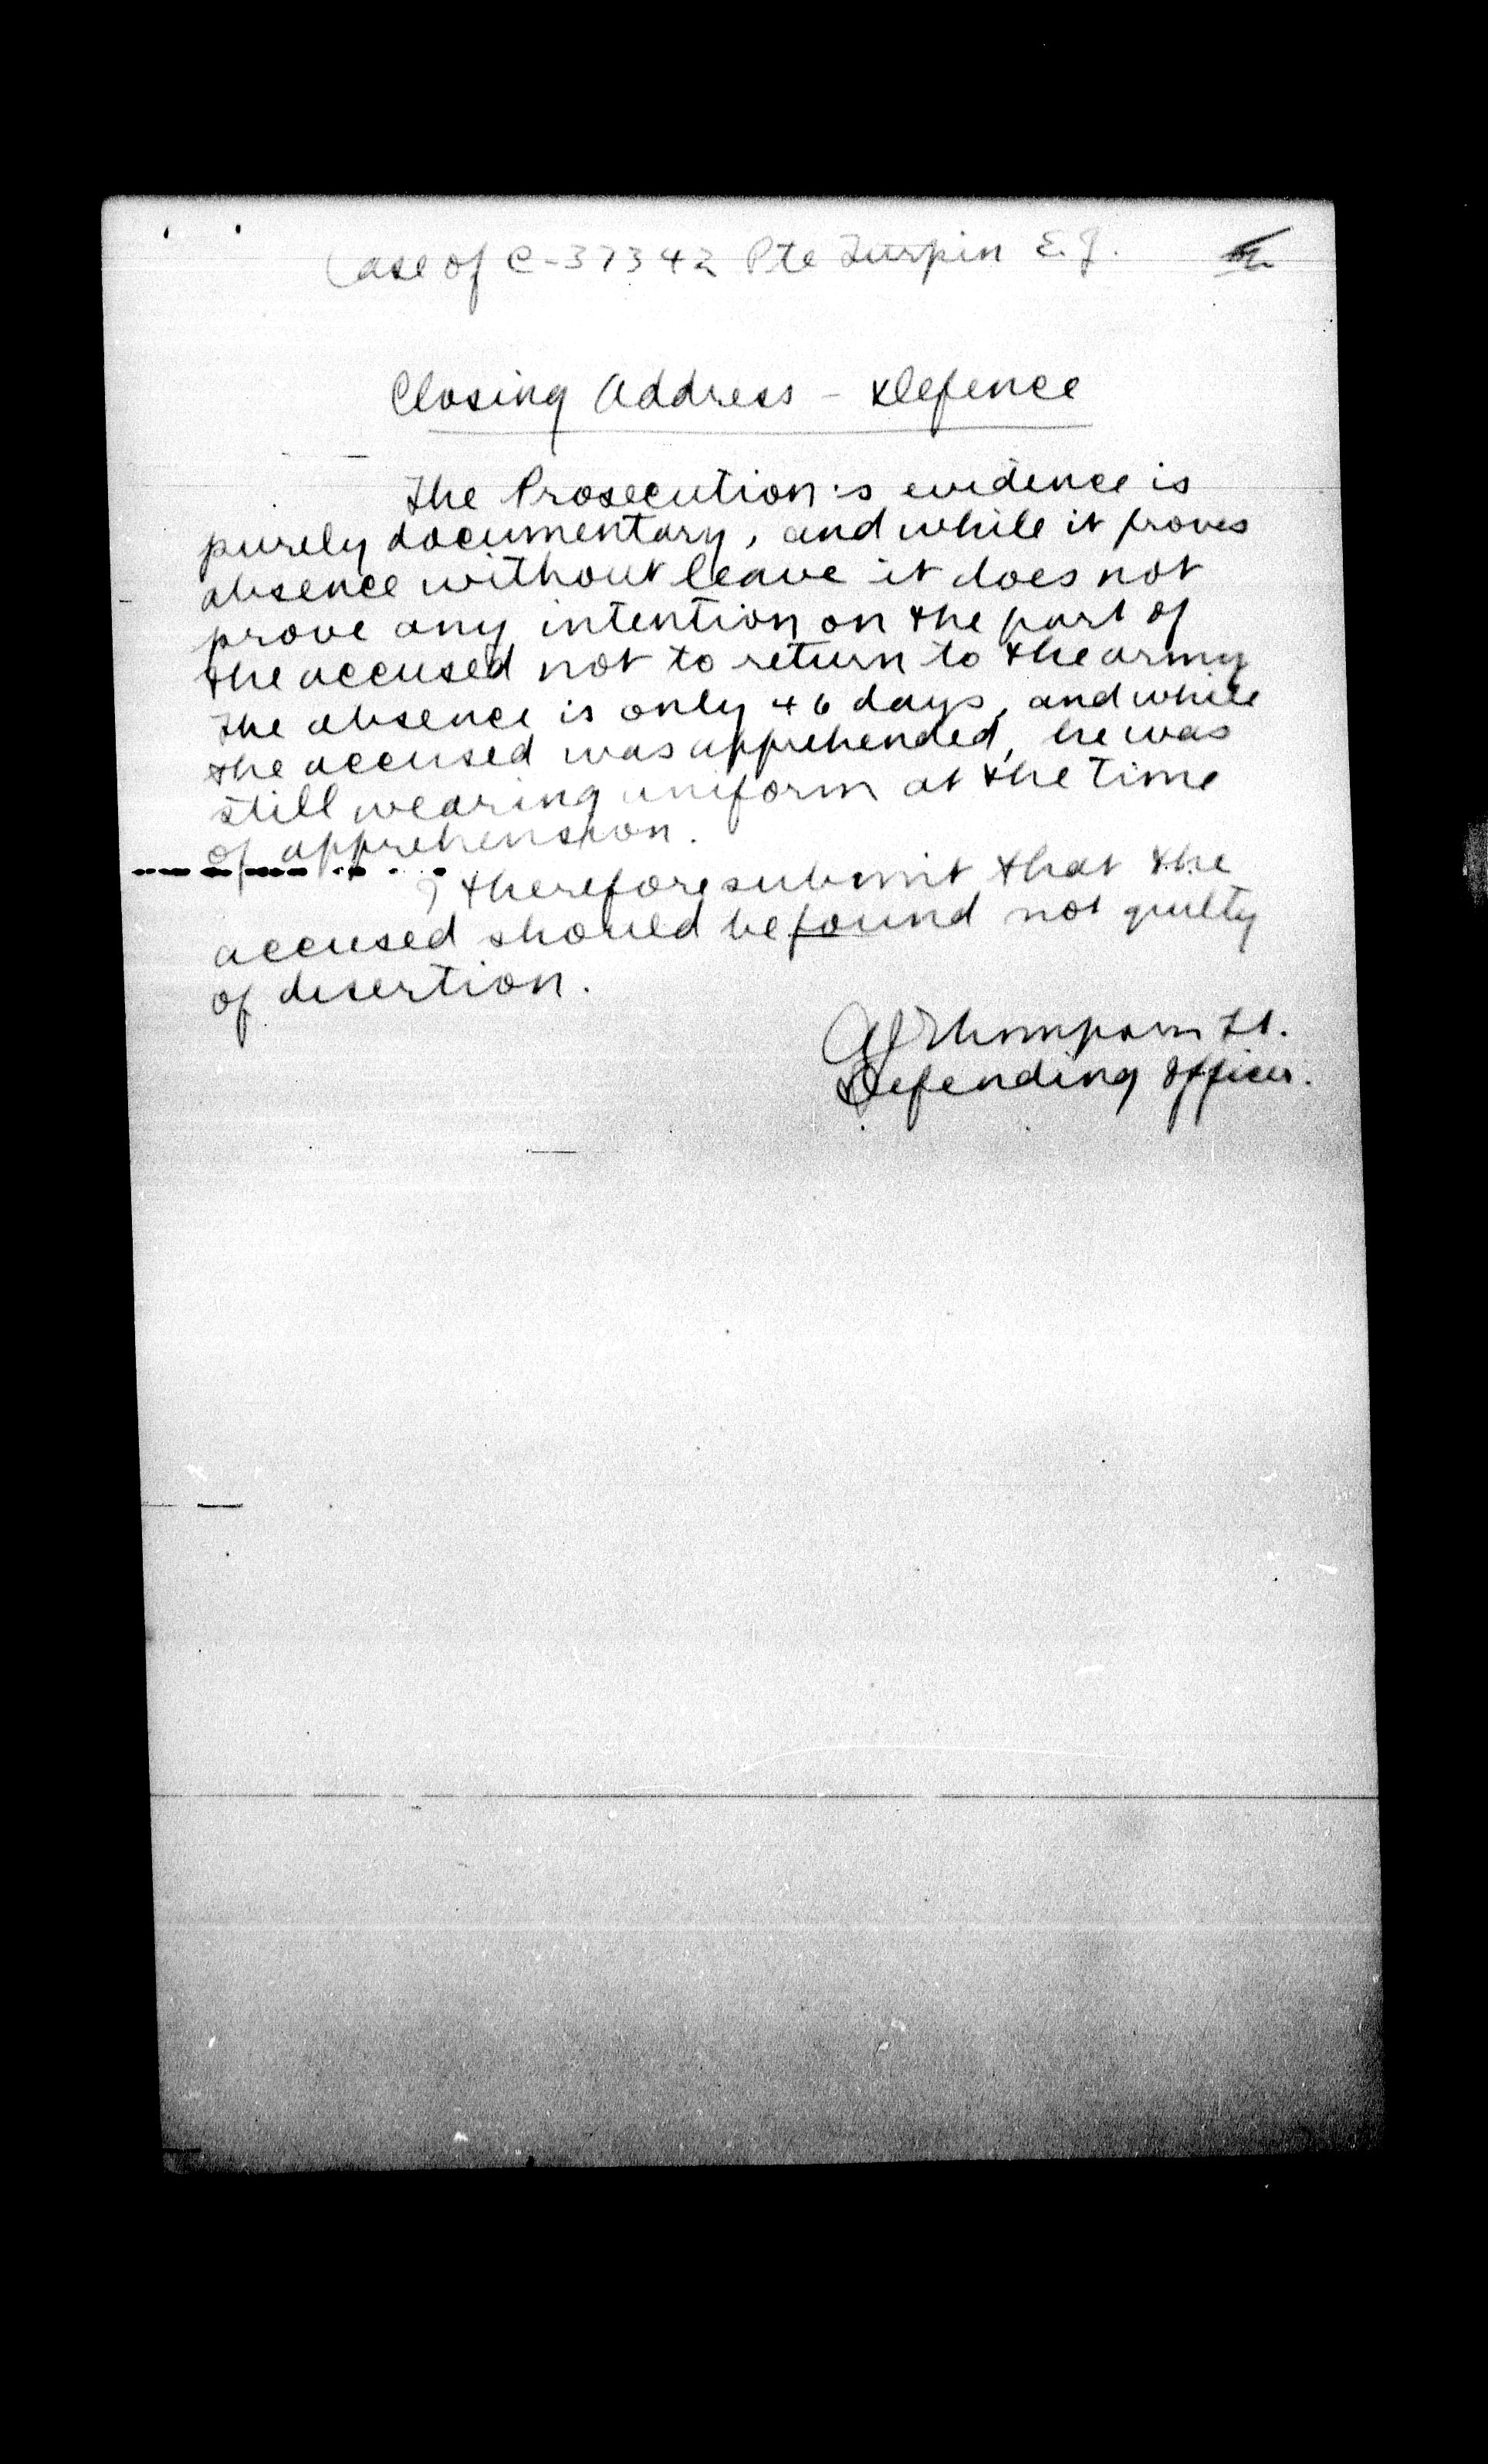 Case of C-37342 Pte Turpin E.J.
Closing Address - Defence
The Prosecution's evidence is
purely documentary, and while it proves
absence without leave it does not
prove any intention on the part of
the accused not to return to the army
The absence is only 46 days, and while
the accused was apprehended, he was
still wearing uniform at the time
of apprehension.
I therefore submit that the
accused should be found not guilty
of desertion.
Thompson Lt.
Defending Officer.